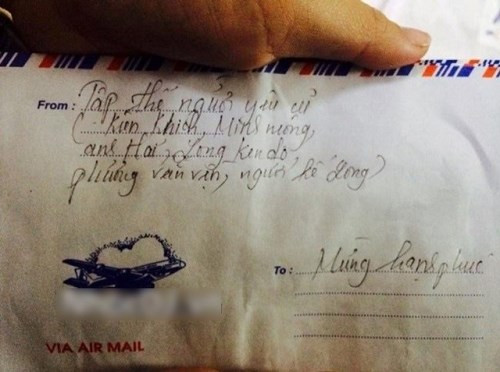 From: Tập thể người yêu cũ
(Kiên Khích, Minh mộng,
anh Hai, Long Kendo,
phường vạn vạn, người kế đong)
To: Mừng hạnh phúc
VIA AIR MAIL